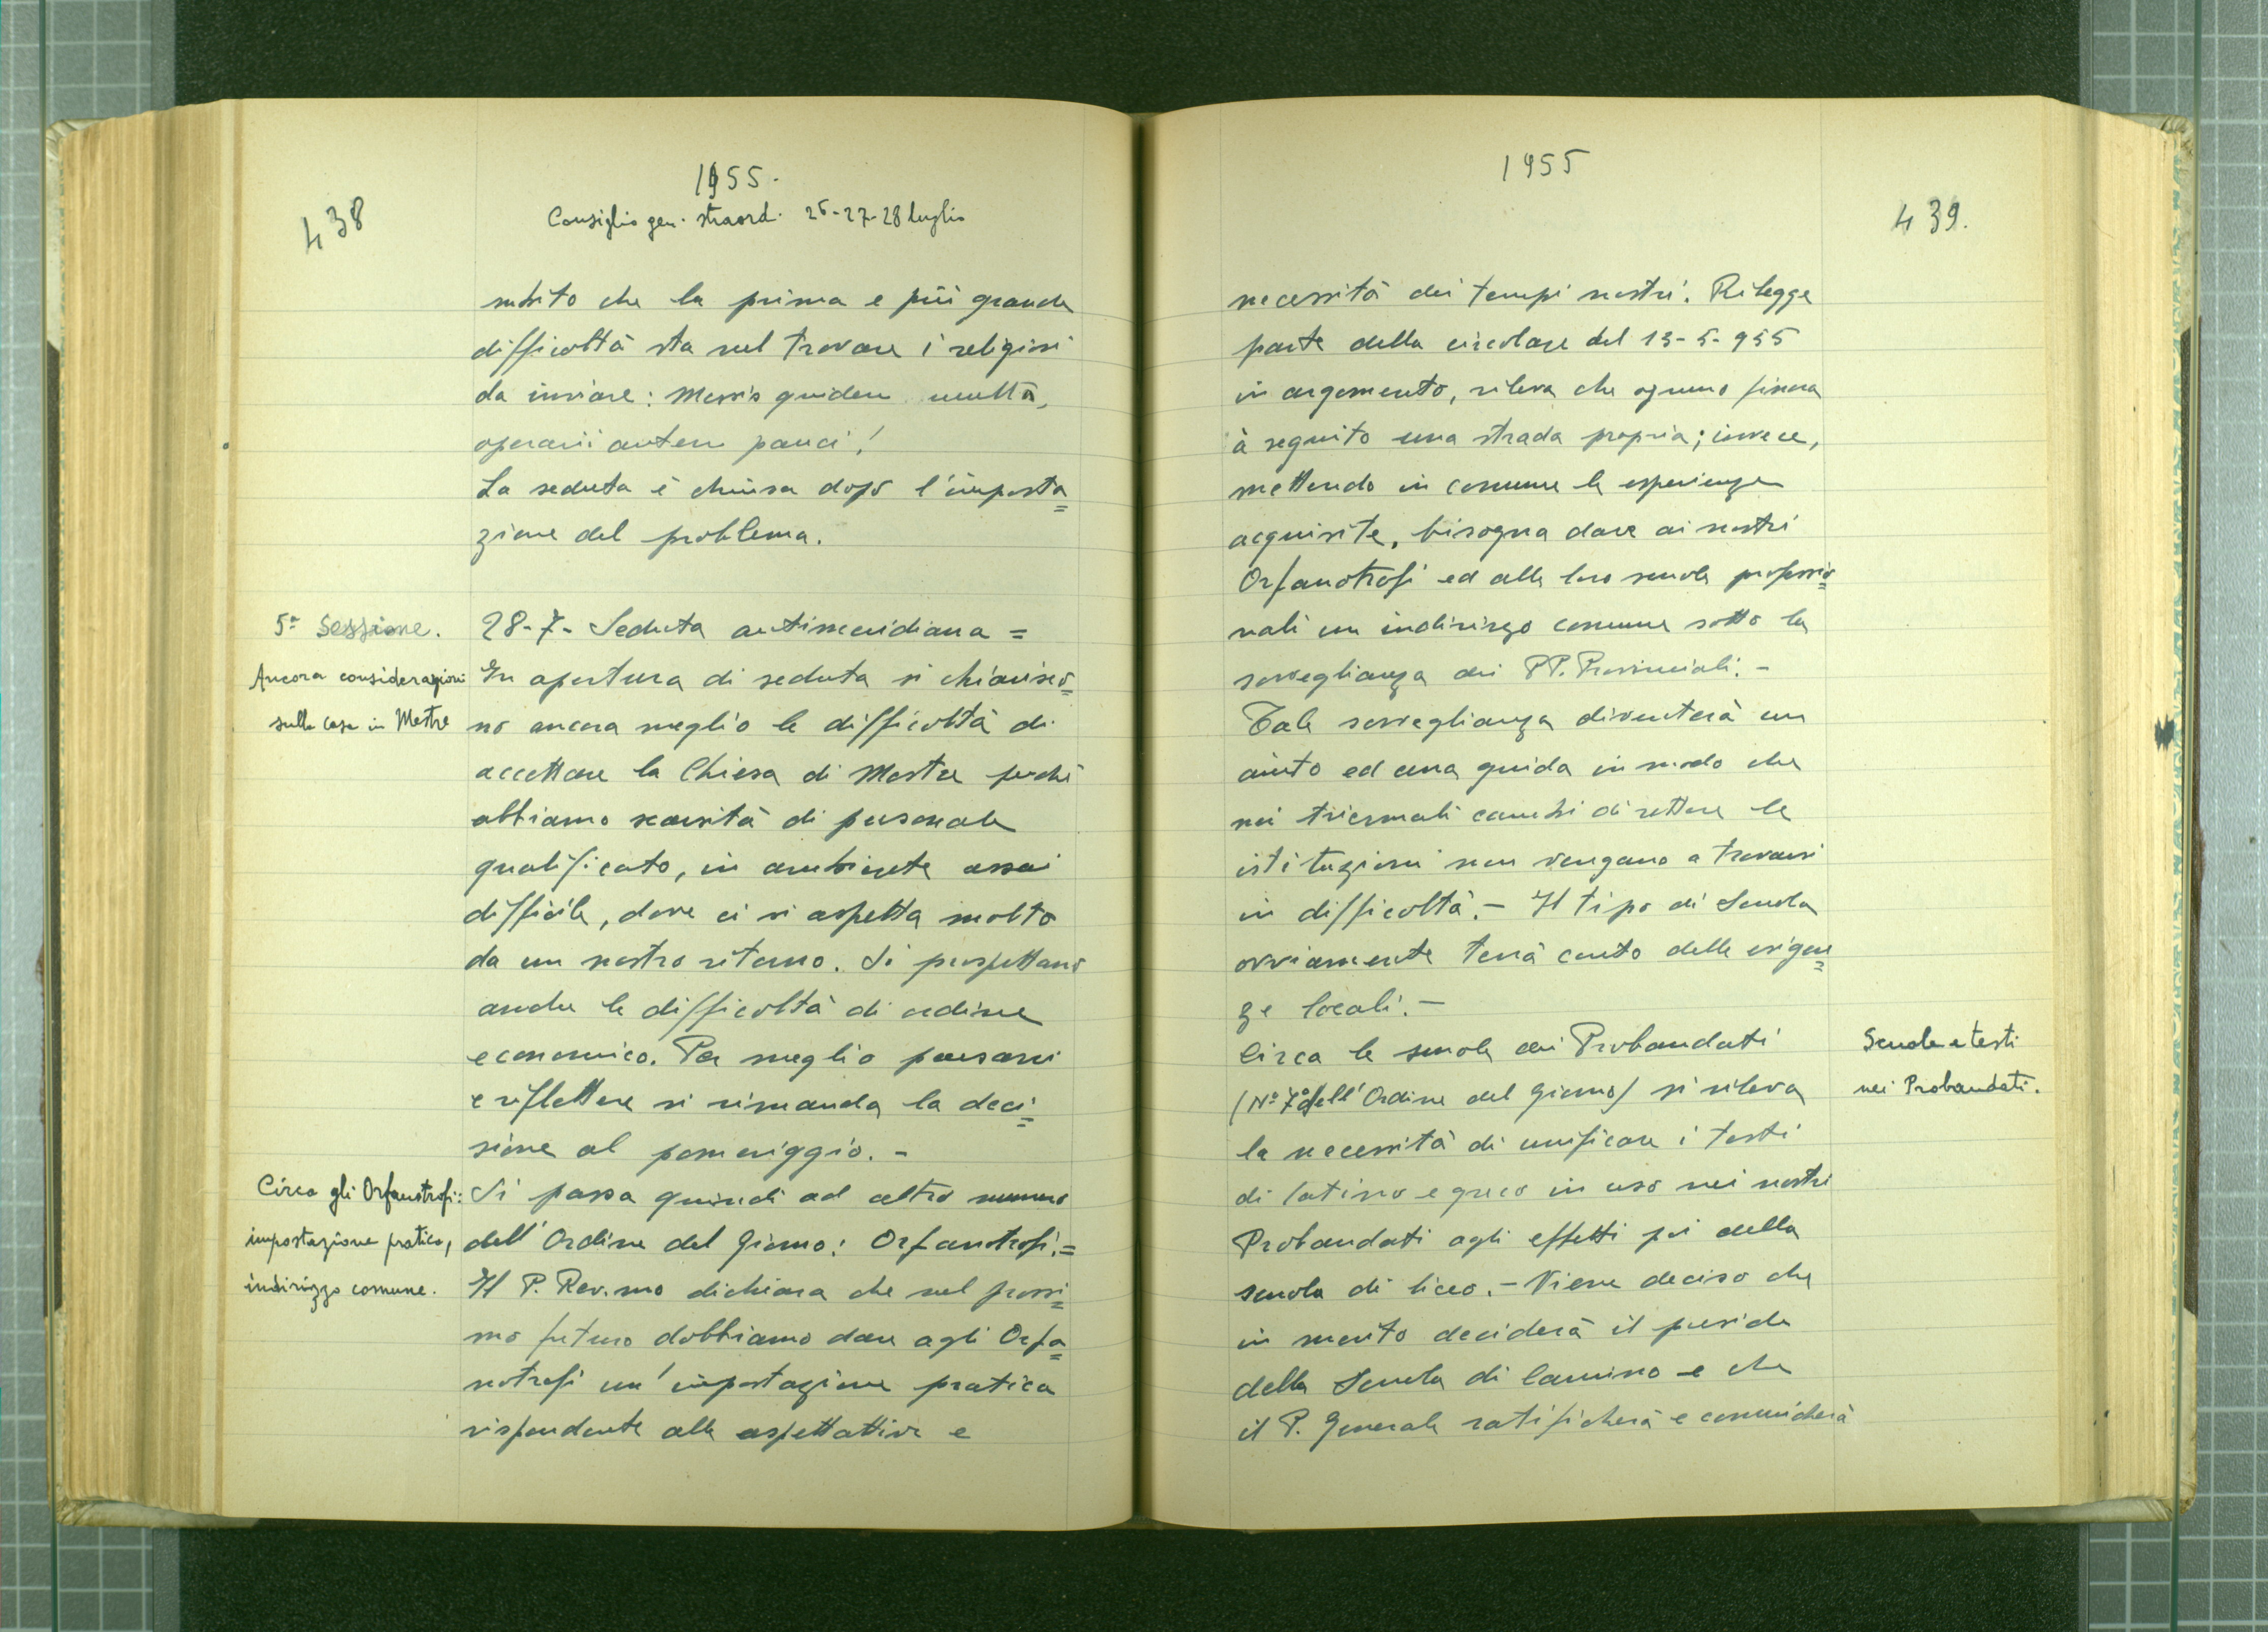 438
1955.
Consiglio gen. straord. 26-27-28 luglio
subito che la prima e più grande
difficoltà sta nel trovare i religiosi
da inviare: Messis quidem multa,
operarii autem pauci!
La seduta è chiusa dopo l'imposta=
zione del problema.
5ª Sessione.
28-7- Seduta antimeridiana =
Ancora considerazioni
sulla casa in Mestre
In apertura di seduta si chiarisco=
no ancora meglio le difficoltà di
accettare la Chiesa di Mestre perchè
abbiamo scarsità di personale
qualificato, in ambiente assai
difficile, dove ci si aspetta molto
da un nostro ritorno. Si prospettano
anche le difficoltà di ordine
economico. Per meglio pensarci
e riflettere si rimanda la deci=
sione al pomeriggio. -
Circa gli Orfanotrofi:
impostazione pratica,
indirizzo comune.
Si passa quindi ad altro numero
dell'Ordine del Giorno: Orfanotrofi. =
Il P. Rev.mo dichiara che nel prossi=
mo futuro dobbiamo dare agli Orfa=
notrofi un'impostazione pratica
rispondente alle aspettative e
1955
439.
necessità dei tempi nostri. Rilegge
parte della circolare del 13-5-955
in argomento, rileva che ognuno finora
à seguito una strada propria; invece,
mettendo in comune le esperienze
acquisite, bisogna dare ai nostri
Orfanotrofi ed alle loro scuole professio=
nali un indirizzo comune sotto la
sorveglianza dei PP. Provinciali. -
Tale sorveglianza diventerà un
aiuto ed una guida in modo che
nei triennali cambi di rettore le
istituzioni non vengano a trovarsi
in difficoltà. - Il tipo di Scuola
ovviamente terrà conto delle esigen=
ze locali. -
Scuole e testi
nei Probandati.
Circa le scuole dei Probandati
(Nº 7º dell'Ordine del Giorno) si rileva
la necessità di unificare i testi
di latino e greco in uso nei nostri
Probandati agli effetti poi della
scuola di liceo. - Viene deciso che
in merito deciderà il preside
della Scuola di Camino e che
il P. Generale ratificherà e comunicherà